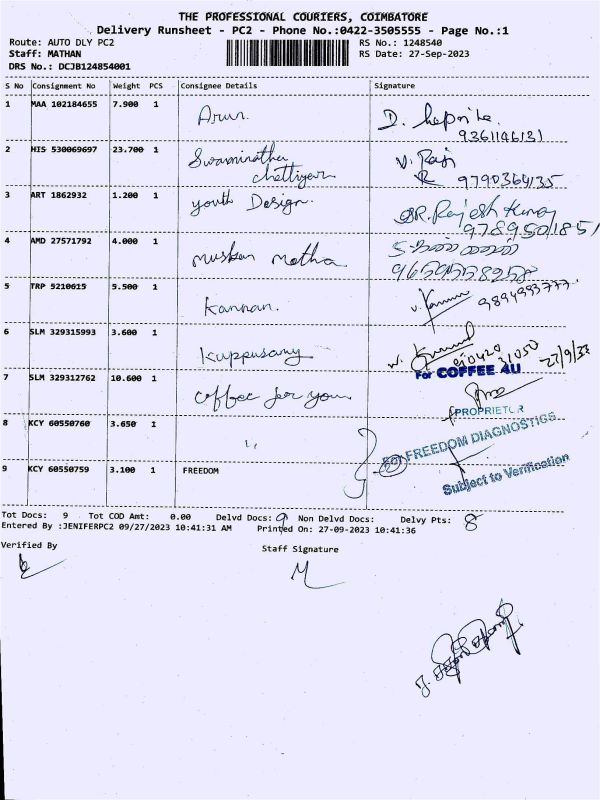 THE PROFESSIONAL COURIERS, COIMBATORE
Delivery Runsheet - PC2 - Phone No.:0422-3505555 - Page No.:1
Route: AUTO DLY PC2 RS No.: 1248540
Staff: MATHAN RS Date: 27-Sep-2023
DRS No.: DCJB124854001
S No Consignment No Weight PCS Consignee Details Signature
1 MAA 102184655 7.900 1 Arun. D.
9361146131
2 HIS 530069697 23.700 1 Swaminatha V. Raji
chettiyar 9790364135
3 ART 1862932 1.200 1 youth Design. R. Rajesh Kumar
9789501851
4 AMD 27571792 4.000 1 muskan matha
9659558258
5 TRP 5210615 5.500 1 Kannan. 9894993777
6 SLM 329315993 3.600 1 Kuppusamy
27/9/23
For COFFEE 4U
7 SLM 329312762 10.600 1 coffee for you
PROPRIETOR
8 KCY 60550760 3.650 1 "
FREEDOM DIAGNOSTICS
9 KCY 60550759 3.100 1 FREEDOM
Subject to Verification
Tot Docs: 9 Tot COD Amt: 0.00 Delvd Docs: 9 Non Delvd Docs: Delvy Pts: 8
Entered By :JENIFERPC2 09/27/2023 10:41:31 AM Printed On: 27-09-2023 10:41:36
Verified By Staff Signature